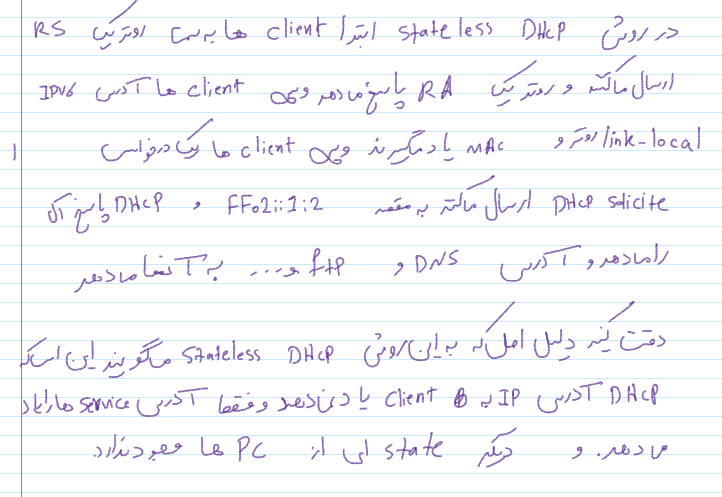 در روش stateless DHCP ابتدا client ها به سمت روتر یک RS
ارسال میکنند و روتر یک RA پاسخ میدهد و client ها آدرس IPV6
link-local روتر و MAC یاد میگیرند و client ها یک درخواست
DHCP solicite ارسال میکنند به مقصد FF02::1:2 و DHCP پاسخ آن
را میدهد و آدرس DNS و ftp و... به آنها میدهد
دقت کنید دلیل اصلی که به این روش stateless DHCP میگویند این است که
DHCP آدرس IP به client یاد نمیدهد و فقط آدرس service ها را یاد
میدهد. و دیگر state ای از PC ها وجود ندارد